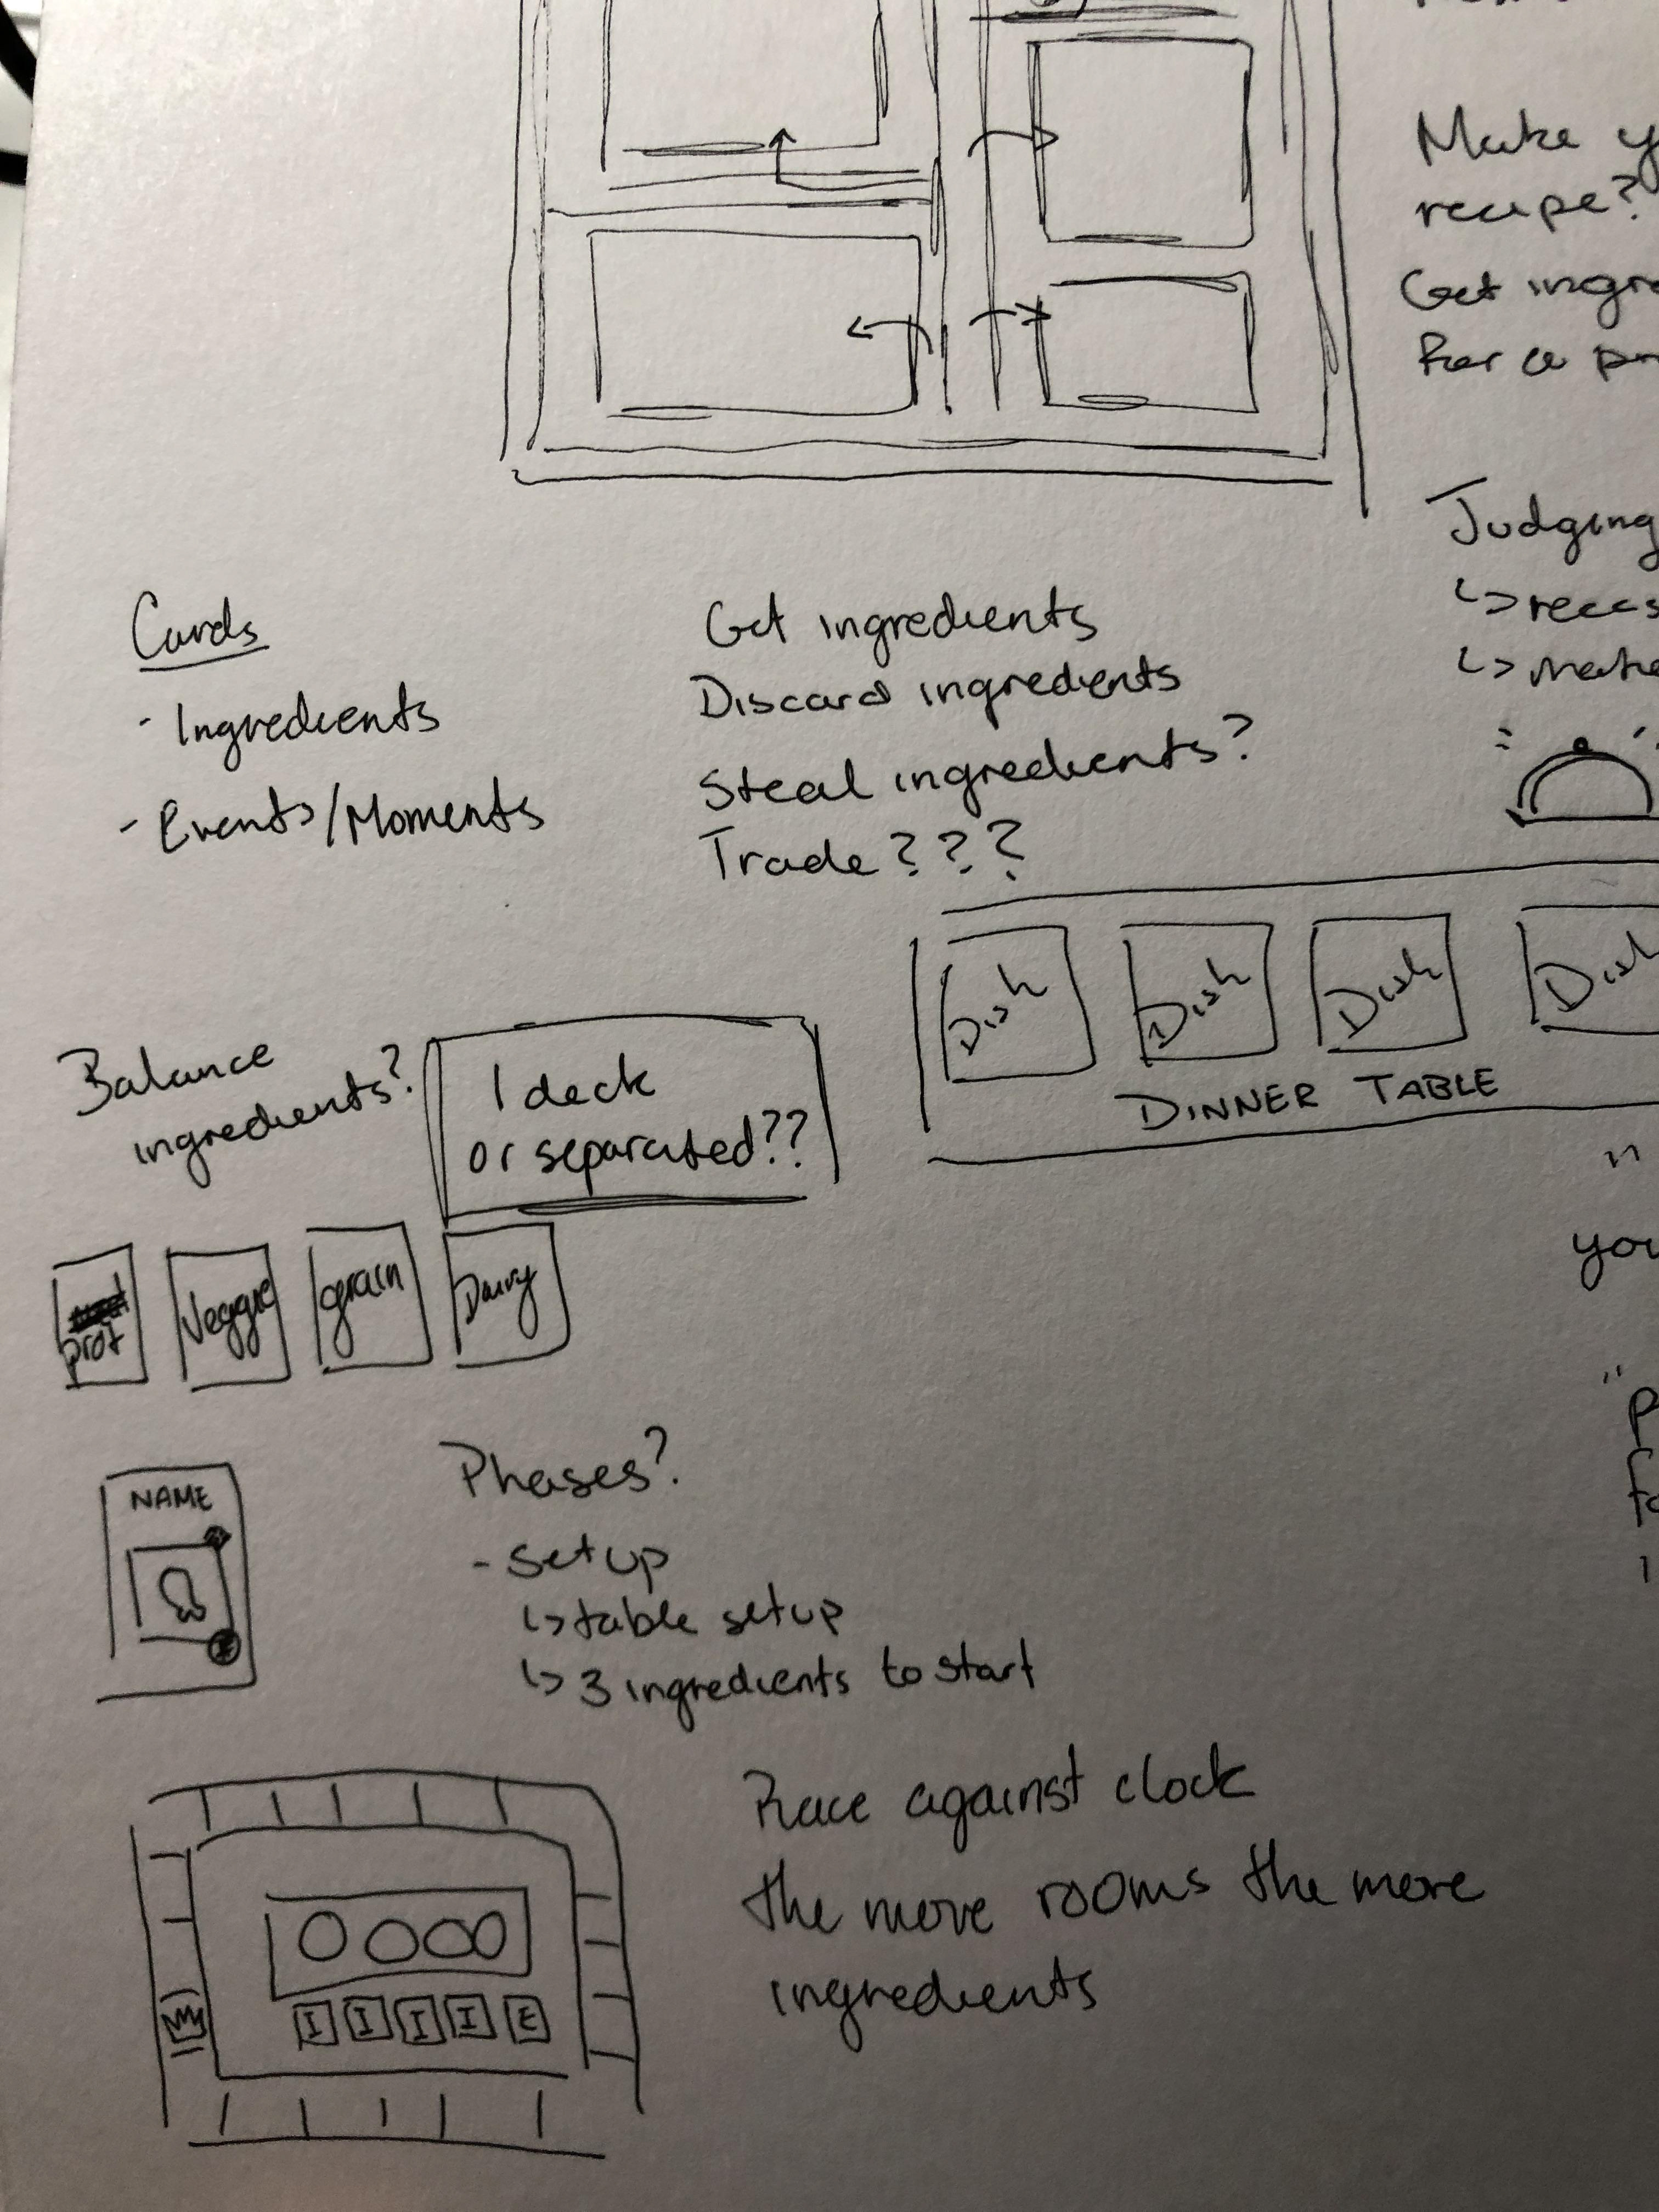 Make
recipe?
Get
for a
Judging
Cards
- Ingredients
- Events/Moments
Get ingredients
Discard ingredients
Steal ingredients?
Trade???
Dish
Dish
Dish
Dish
DINNER TABLE
Balance
ingredients?
1 deck
or separated??
prot
Veggie
grain
Dairy
NAME
Phases?
- setup
↳ table setup
↳ 3 ingredients to start
I I I I E
Race against clock
the more rooms the more
ingredients